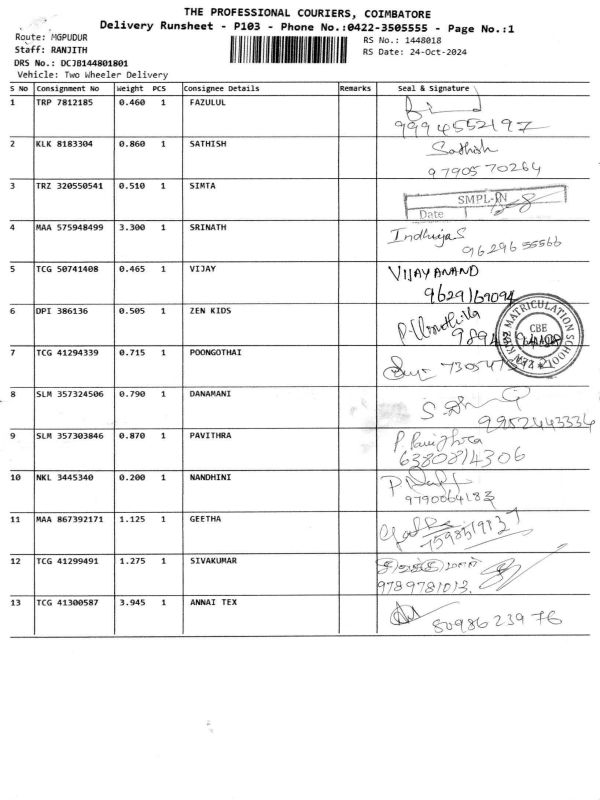 THE PROFESSIONAL COURIERS, COIMBATORE
Delivery Runsheet - P103 - Phone No.:0422-3505555 - Page No.:1
Route: MGPUDUR
RS No.: 1448018
Staff: RANJITH
RS Date: 24-Oct-2024
DRS No.: DCJB144801801
Vehicle: Two Wheeler Delivery
S No Consignment No Weight PCS Consignee Details Remarks Seal & Signature
1 TRP 7812185 0.460 1 FAZULUL
9994552197
2 KLK 8183304 0.860 1 SATHISH Sathish
9790570264
3 TRZ 320550541 0.510 1 SIMTA
SMPL-IN
Date
4 MAA 575948499 3.300 1 SRINATH Indhuja S
9629655566
5 TCG 50741408 0.465 1 VIJAY VIJAY ANAND
9629169094
6 DPI 386136 0.505 1 ZEN KIDS
9894
MATRICULATION SCHOOL
CBE
7 TCG 41294339 0.715 1 POONGOTHAI
73054
8 SLM 357324506 0.790 1 DANAMANI
9952443334
9 SLM 357303846 0.870 1 PAVITHRA P. Pavithra
6380814306
10 NKL 3445340 0.200 1 NANDHINI
9790064183
11 MAA 867392171 1.125 1 GEETHA
7598519137
12 TCG 41299491 1.275 1 SIVAKUMAR
9789781013.
13 TCG 41300587 3.945 1 ANNAI TEX
8098623976